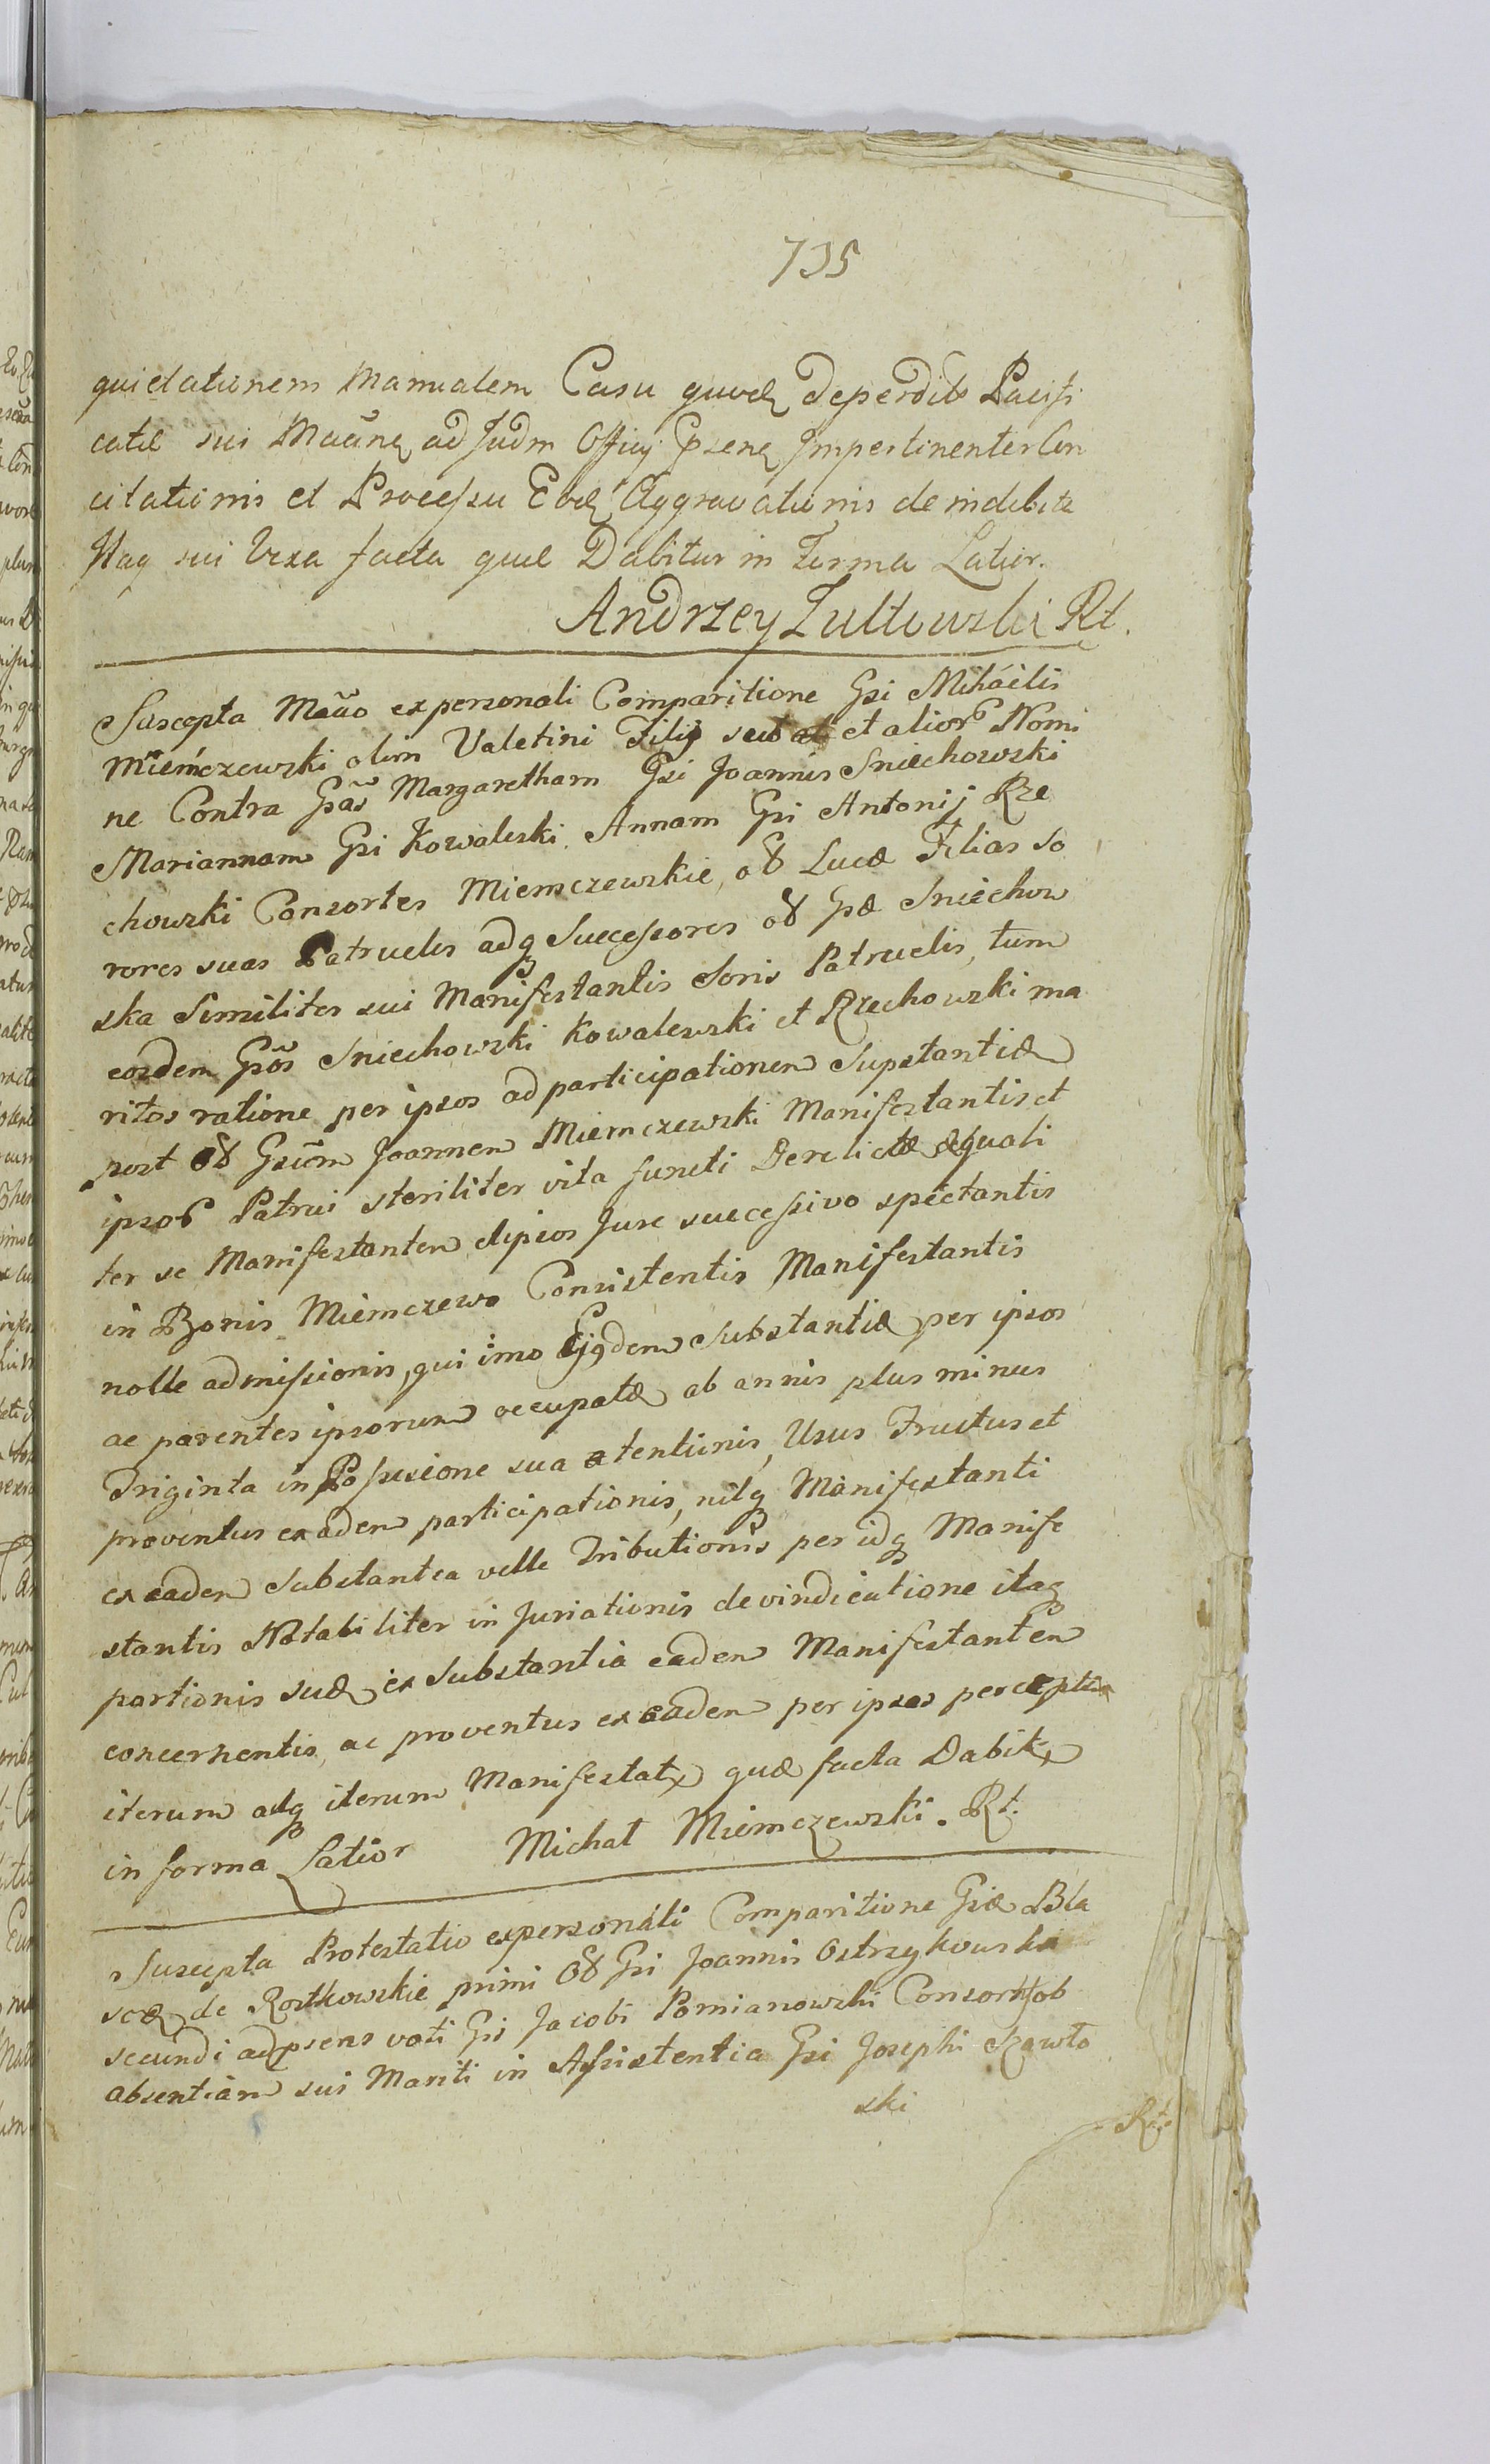 735
quietationem Manualem Casu quovd deperdito Pacifi
catae sui Maūne ad Judm Officy Gsene Impertinenter Con
citationis et Processu Eod Aggravationis de indebite
Itaq sui Vexa facta quae Dabitur in Forma Latior.
Andrzey Zultowski Rt.
Suscepta Mãno ex personali Comparitione Gsi Mihaelis
Miemczewski olim Valetini Filij suo et alior Nomi
ne Contra Gsãs Margaretham Gsi Joannis Sniechowski
Mariannam Gsi Kowaleski Annam Gsi Antonij Rze
chowski Consortes Miemczewskie, oð Lucæ Filias so
rores suas Patrueles adq Successores oð Gsæ Sniechow
ska Similiter sui Manifestantis Soris Patruelis, tum
eosdem Gsõs Sniechowski Kowalewski et Rzechowski ma
ritos ratione per ipsos ad participationem Supstantiæ
post oð Gsũm Joannem Miemczewski Manifestantis et
ipsor Patrui steriliter vita functi Derelictæ æquali
ter se Manifestantem et ipsos Jure successivo spectantis
in Bonis Miemczewo Consistentis Manifestantis
nolle admissionis, qui imo Ejqdem Substantiæ per ipsos
ac parentes ipsorum occupatæ ab annis plus minus
Triginta in Possesione sua atentionis, Usus Fructus et
proventus ex adem participationis, nilq Manifestanti
ex eadem Substantia velle Tributionis per idq Manife
stantis Notabiliter in Juriationis de vindicatione itaq
portionis suæ ex Substantia eadem Manifestantem
concernentis, ac proventus ex eadem per ipsos percepti
iterum atq iterum Manifestat quæ facta Dabit
in forma Latior Michał Miemczewski. Rt.
Suscepta Protestatio ex personali Comparitione Gsæ Bla
scæ de Rostkowskie primi oð Gsi Joannis Ostrzykowski
secundi ad psens voti Gsi Jacobi Pomianowski Consort ob
absentiam sui Mariti in Assistentia Gsi Josephi Szawło
ski
Rt.